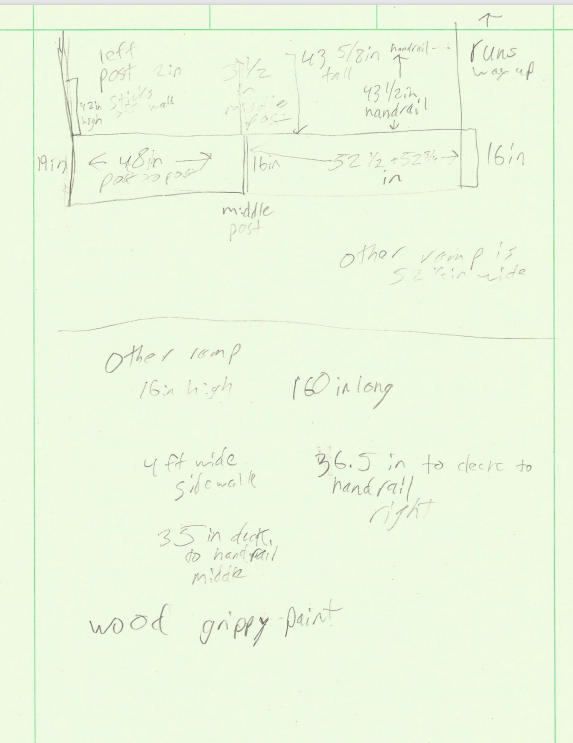 left
post 2in
42in
high
walk
3 1/2
in
middle
post
43 5/8in
tall
handrail
43 1/2in
handrail
runs
way up
19in
48in
post to post
16in
52 1/2
in
16in
middle
post
other ramp is
52 in wide
Other ramp
16in high
160 in long
4 ft wide
sidewalk
36.5 in to deck to
handrail
right
35 in deck
to handrail
middle
wood grippy paint